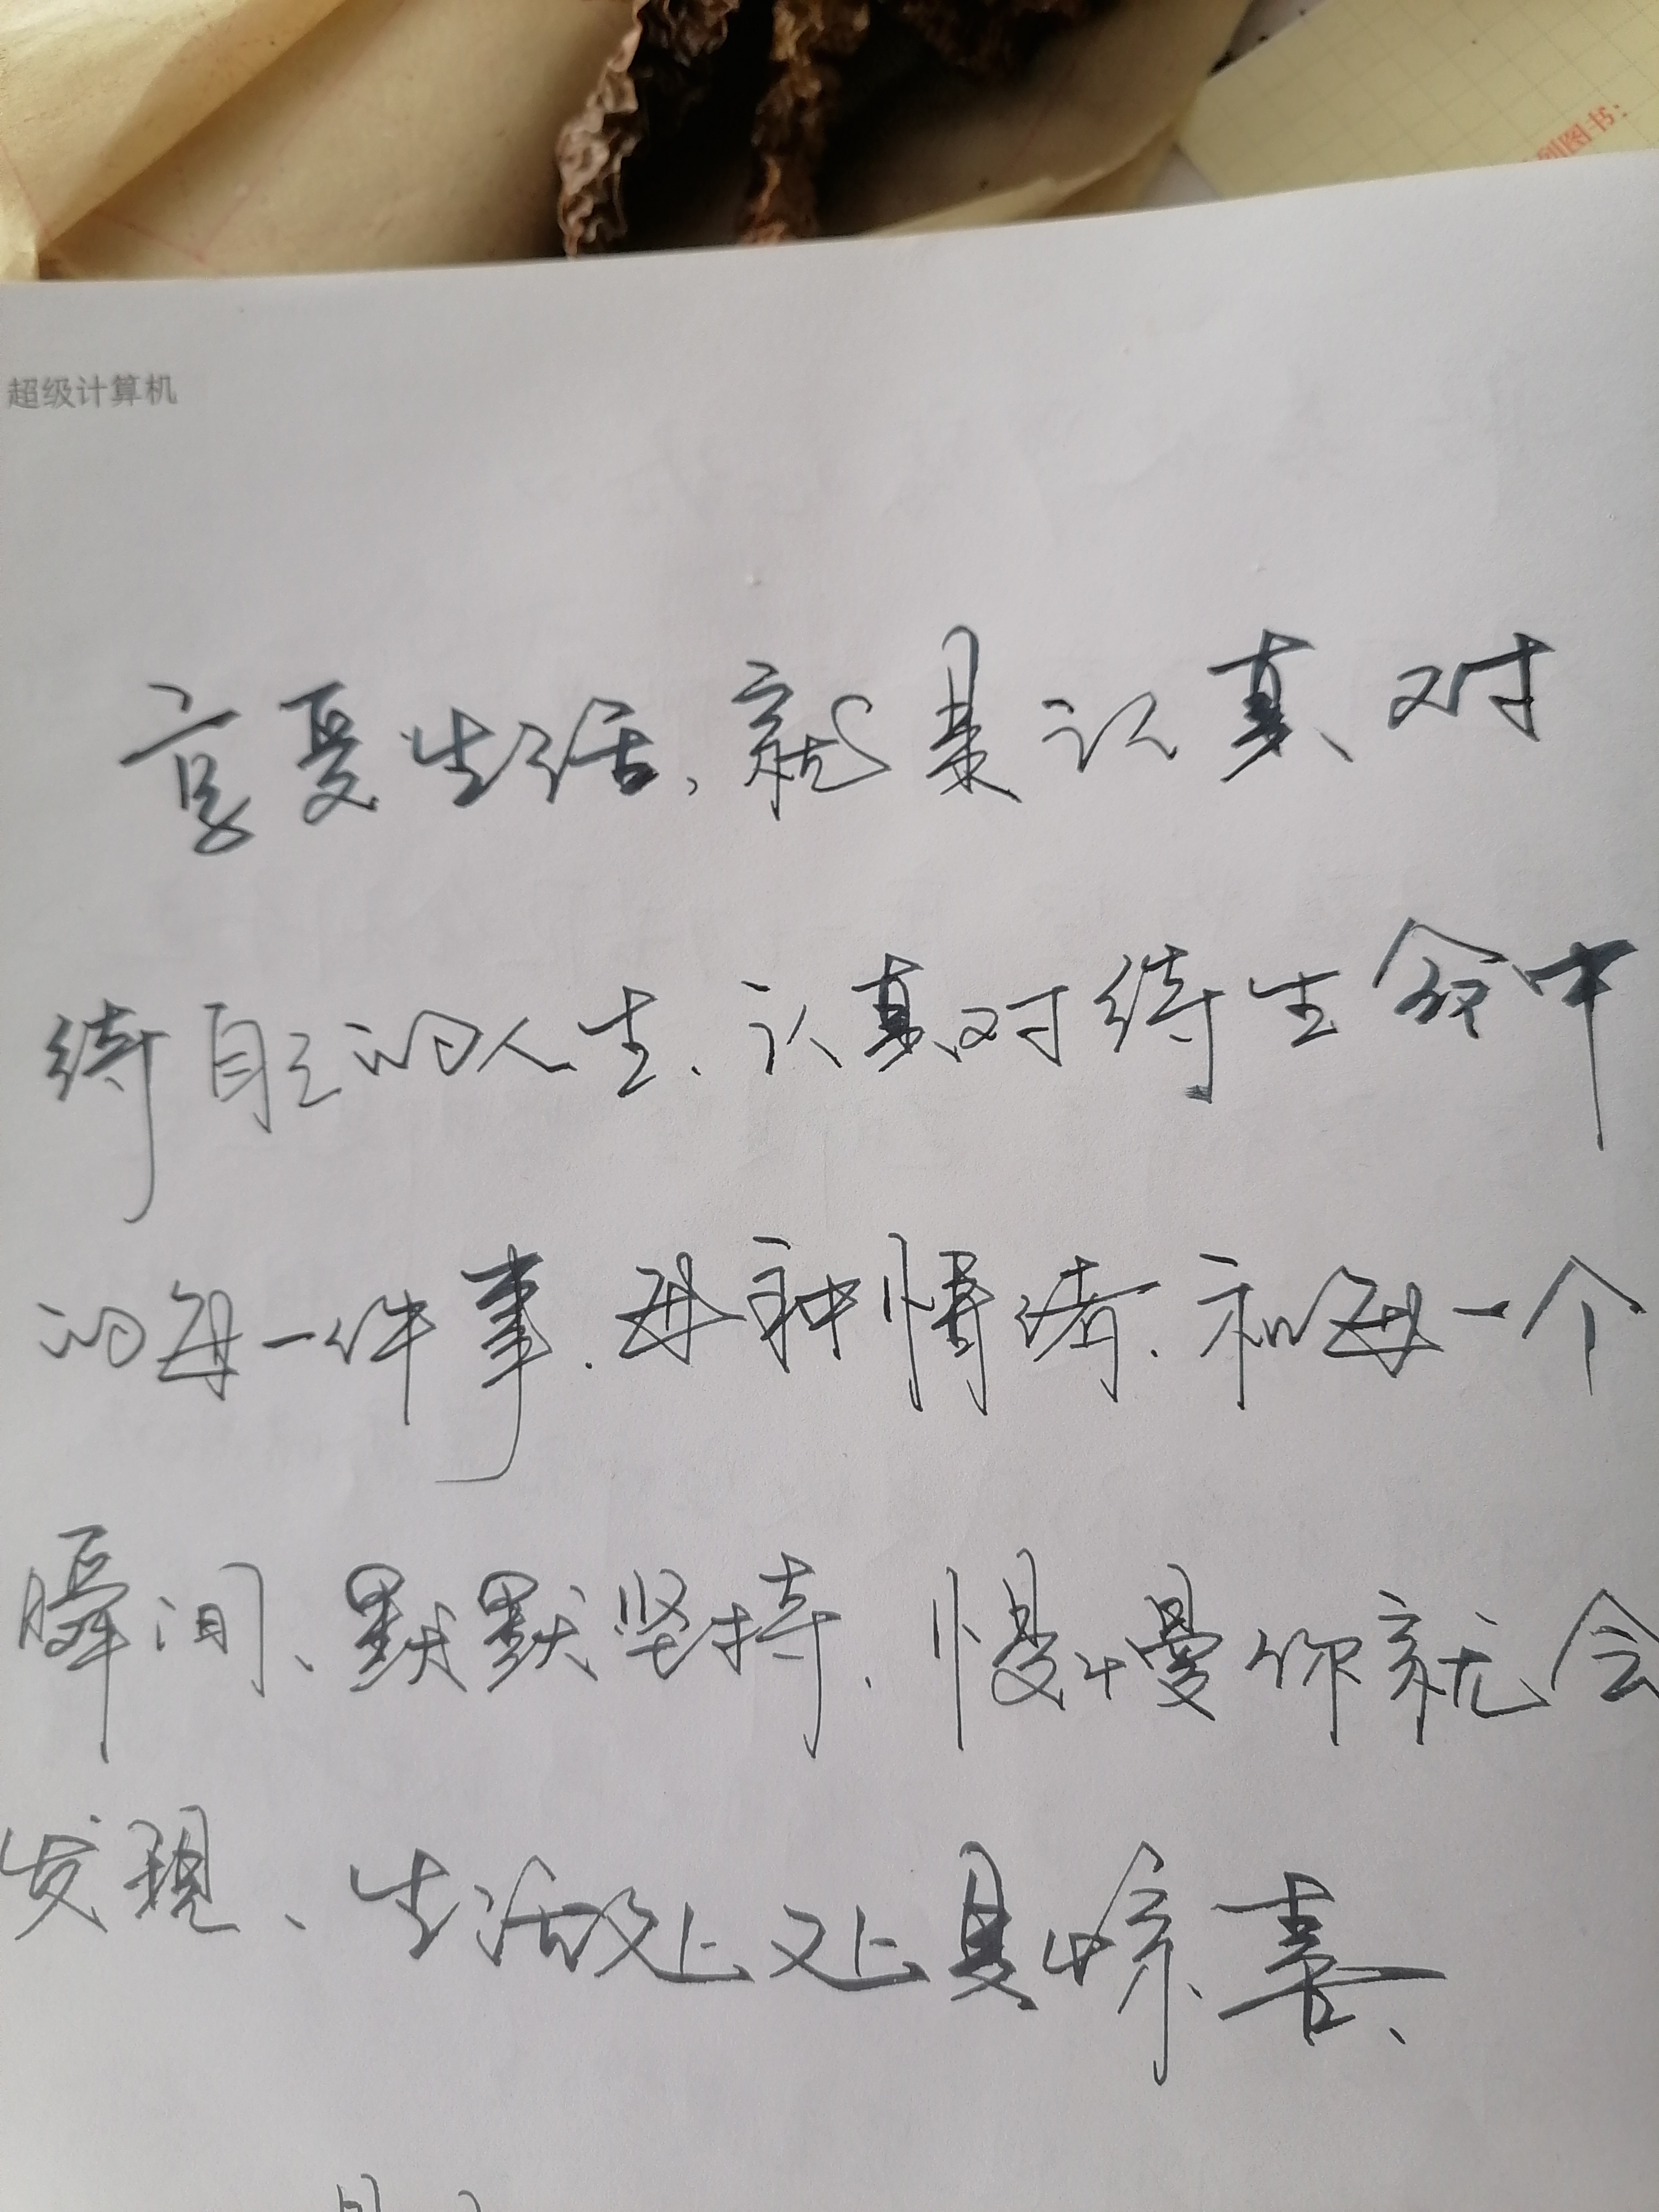 列图书：
超级计算机
享受生活，就是认真对
待自己的人生、认真对待生命中
的每一件事、每种情绪、和每一个
瞬间、默默坚持、慢慢你就会
发现、生活处处是惊喜、